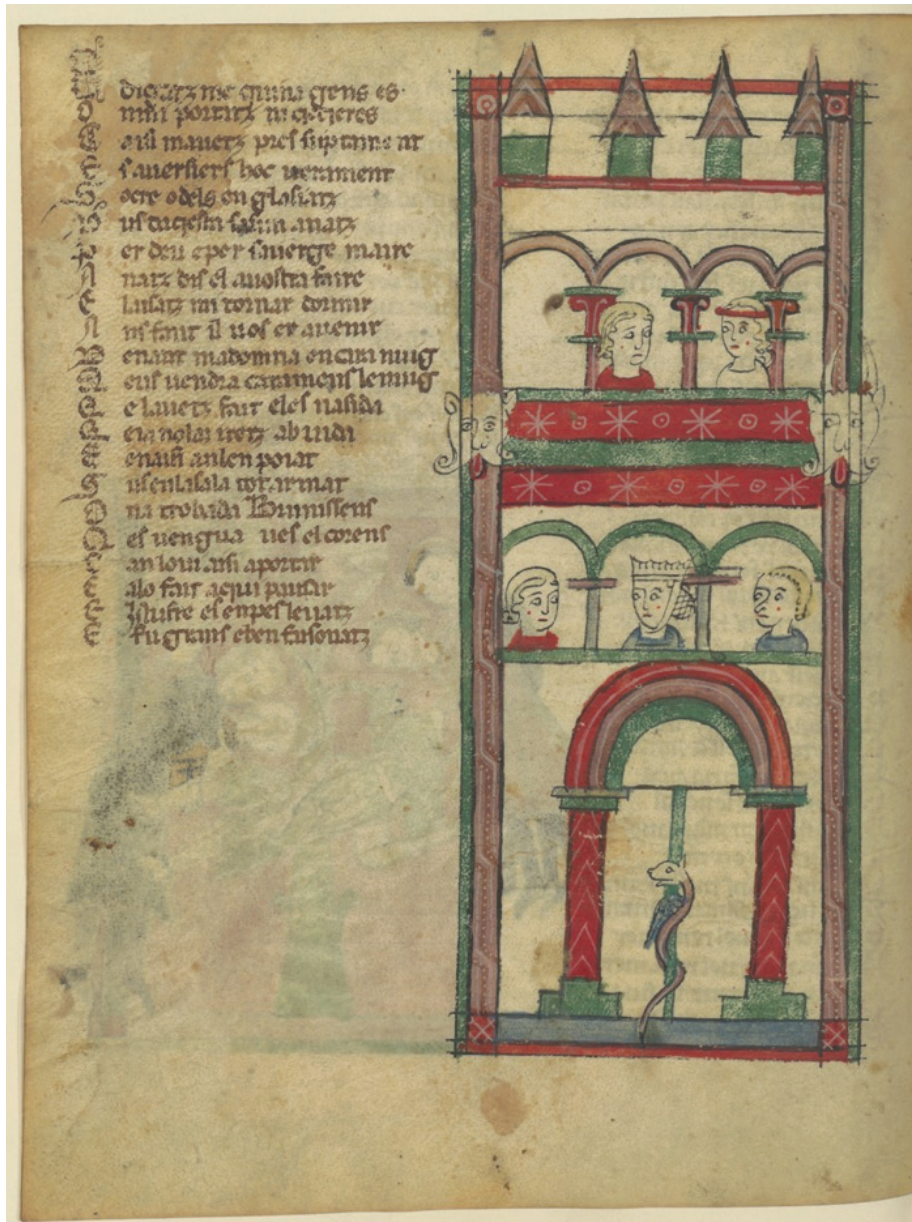 digatz me quina gens es
O min portatz ni
E aisi mauetz pres
E sauersiers hoc uerament
S ocre odels en glasiatz
V us
P er deu e per sa uerge maire
A natz dis el a uostra faire
E laisatz mi tornar dormir
A us fait il uos er auenir
D enant ma domna en cui nuig
Q eus uendra caramens lenuig
E lauetz fait el es nasida
E ab uida
E enaisi an len poiat
S us en la sala tot armat
O na trobada Brunissens
Q es uengua ues el corens
E an lo aisi aportat
E a lo fait aqui pausar
E Iaufre es en pes leuatz
E fu grans e ben faisonatz